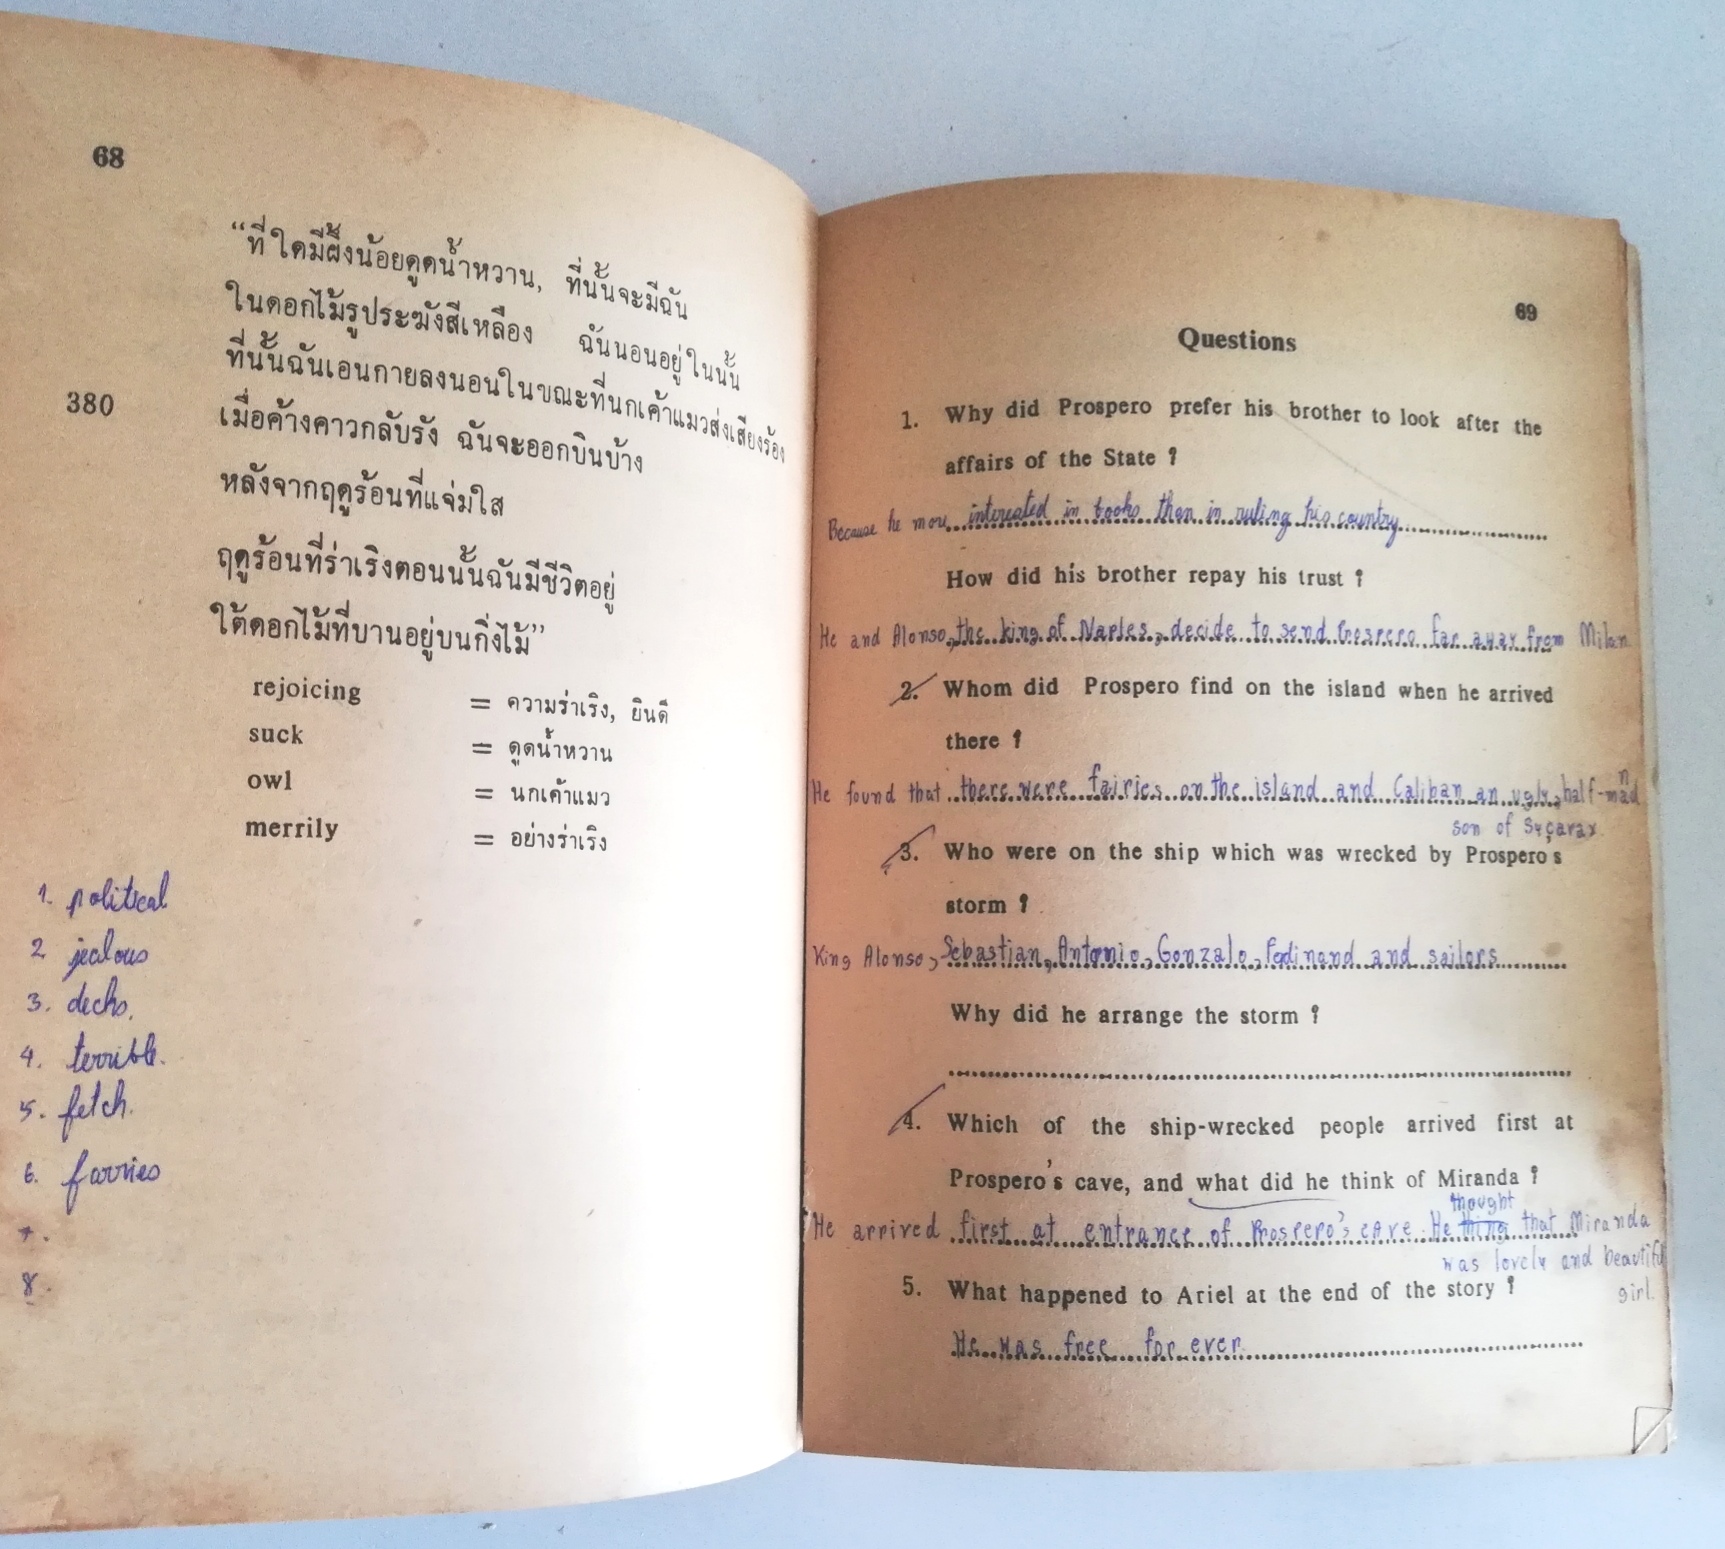 68
“ที่ใดมีผึ้งน้อยดูดน้ำหวาน, ที่นั้นจะมีฉัน
ในดอกไม้รูประฆังสีเหลือง ฉันนอนอยู่ในนั้น
ที่นั้นฉันเอนกายลงนอนในขณะที่นกเค้าแมวส่งเสียงร้อง
380 เมื่อค้างคาวกลับรัง ฉันจะออกบินบ้าง
หลังจากฤดูร้อนที่แจ่มใส
ฤดูร้อนที่ร่าเริงตอนนั้นฉันมีชีวิตอยู่
ใต้ดอกไม้ที่บานอยู่บนกิ่งไม้”
rejoicing = ความร่าเริง, ยินดี
suck = ดูดน้ำหวาน
owl = นกเค้าแมว
merrily = อย่างร่าเริง
1. political
2 jealous
3. decks.
4. terrible.
5. fetch.
6. farries
7.
8.
69
Questions
1. Why did Prospero prefer his brother to look after the
affairs of the State ?
Because he more interested in books then in ruling his country
How did his brother repay his trust ?
He and Alonso, the king of Naples, decide to send Prospero far away from Milan.
2. Whom did Prospero find on the island when he arrived
there ?
He found that there were fairies on the island and Caliban an ugly, half-man
son of Sycarax.
3. Who were on the ship which was wrecked by Prospero's
storm ?
King Alonso, Sebastian, Antonio, Gonzalo, Fedinand and sailors
Why did he arrange the storm ?
4. Which of the ship-wrecked people arrived first at
Prospero's cave, and what did he think of Miranda ?
thought
He arrived first at entrance of Prospero's cave. He thing that Miranda
was lovely and beautiful
girl.
5. What happened to Ariel at the end of the story ?
He was free for ever